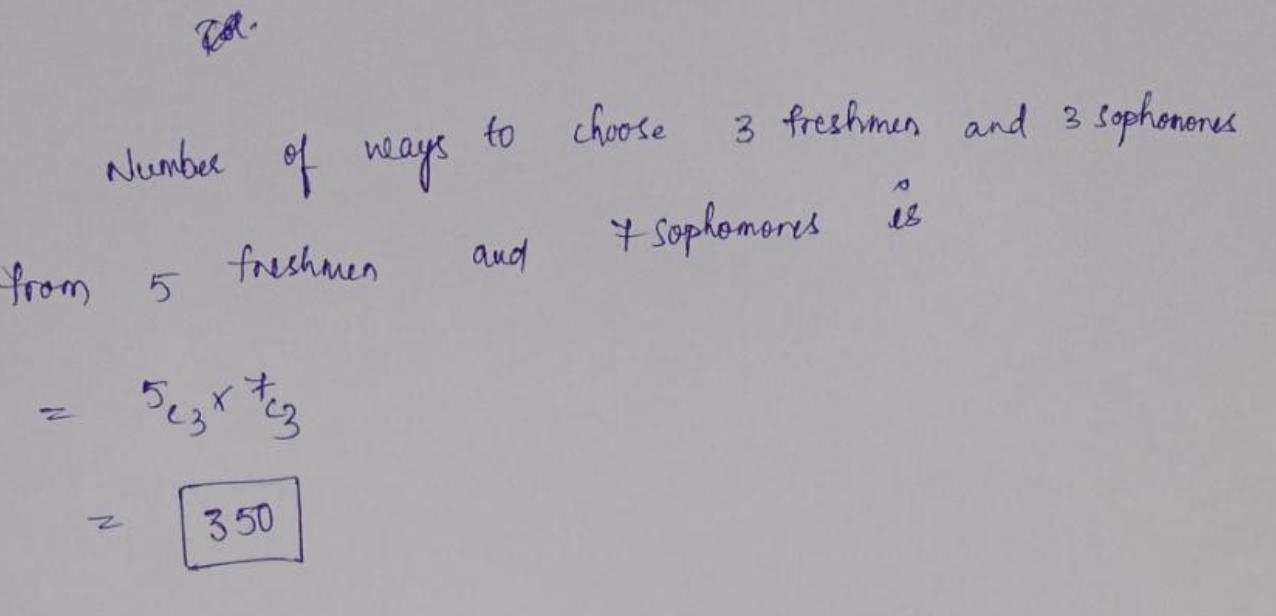 Number of ways to choose 3 freshmen and 3 sophonones
from 5 freshmen and 7 sophomores is
= ⁵C₃ × ⁷C₃
= 350